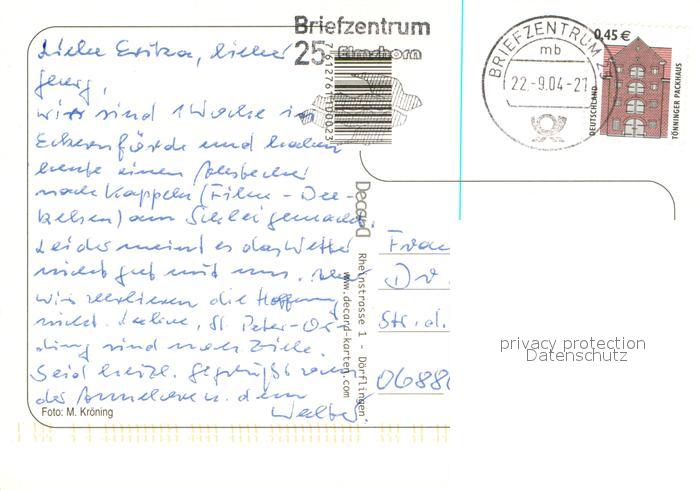 Briefzentrum
25 Elmshorn
7612761110023
BRIEFZENTRUM 25
mb
22.-9.04-21
0,45 €
DEUTSCHLAND
TÖNNINGER PACKHAUS
Liebe Erika, lieber
Georg,
wir sind 1 Woche in
Eckernförde und haben
heute einen Abstecher
nach Kappeln (Film - Dee-
kelsen) am Schlei gemacht.
Leider meint es das Wetter
nicht gut mit uns. Aber
wir verlieren die Hoffnung
nicht. St. Peter-Or-
ding sind noch Ziele.
Seid herzl. gegrüßt von
der Annelore u. dem
Walter.
Foto: M. Kröning
Decard
Rheinstrasse 1 - Dörflingen
www.decard-karten.com
Frau
Dr.
Str. d.
0688
privacy protection
Datenschutz